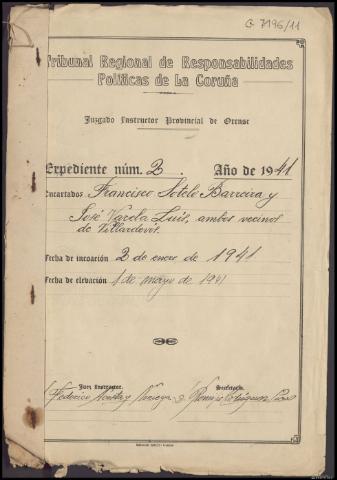 C-7196/11
Tribunal Regional de Responsabilidades
Políticas de La Coruña
Juzgado Instructor Provincial de Orense
Expediente núm. 2. Año de 1941
Encartados Francisco Sotelo Barreira y
José Varela Luis, ambos vecinos
de Villardevós.
Fecha de incoación 2 de enero de 1941
Fecha de elevación 1 de mayo de 1941
Juez Instructor, Secretario,
Federico